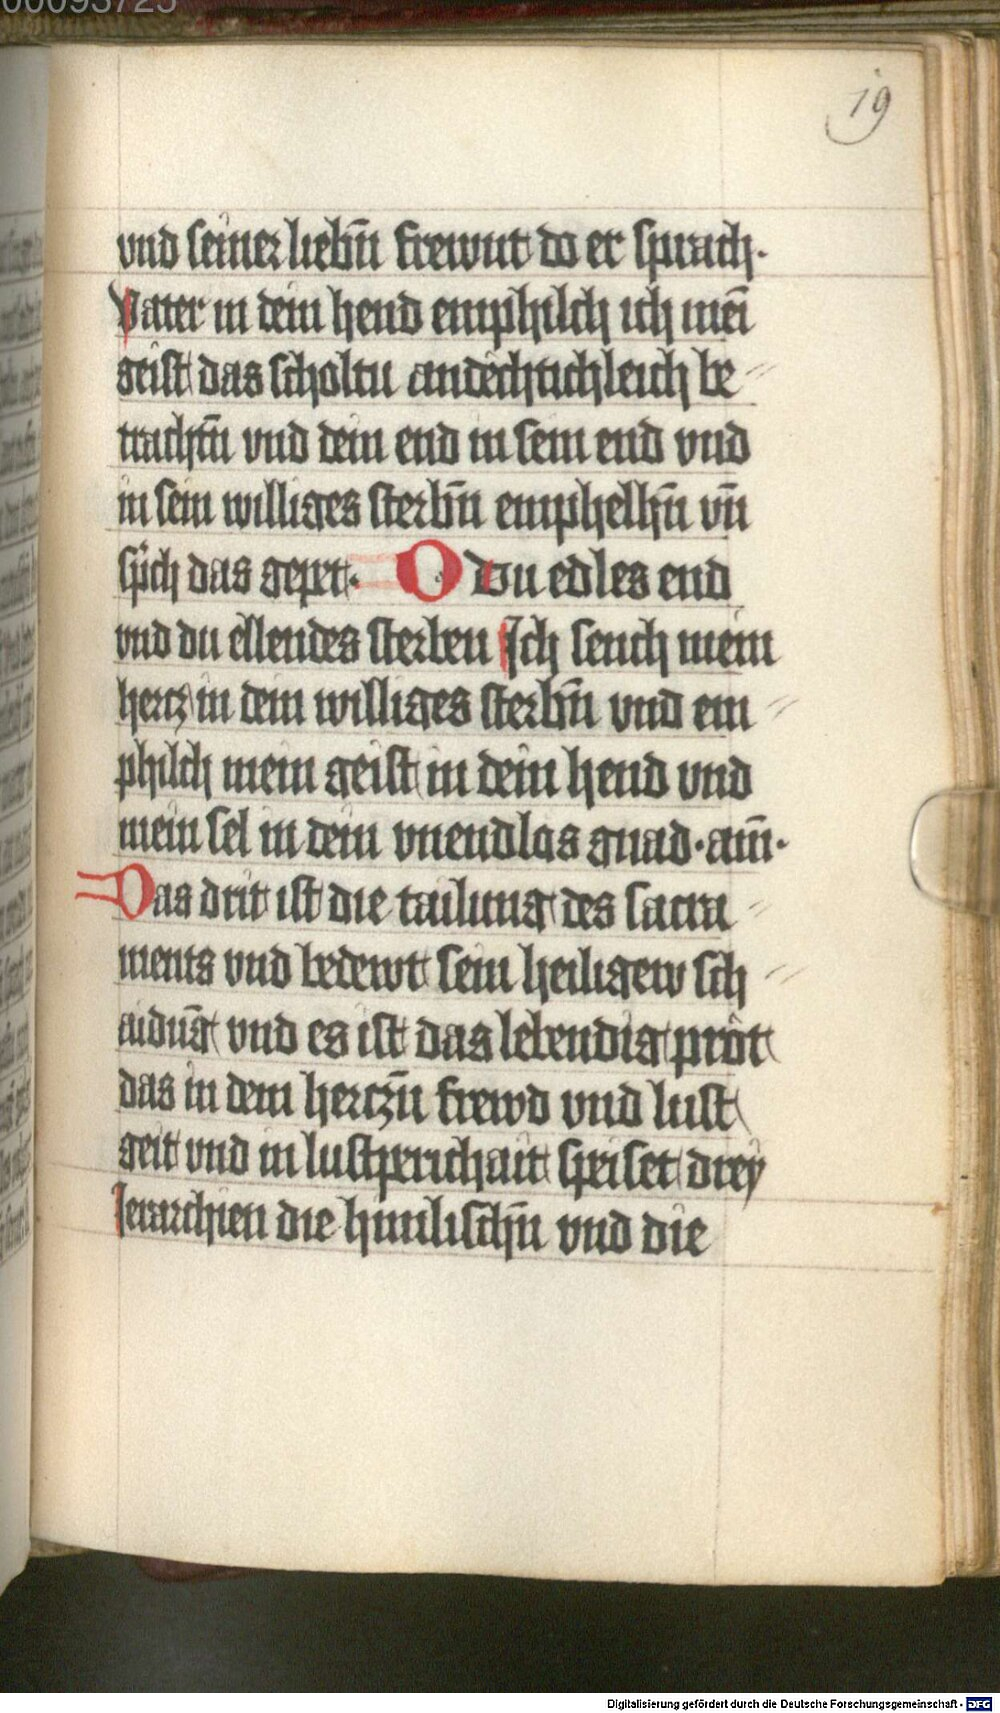 00093725
19
vnd seiner liebn̄ frewnt do er sprach·
Vater in dein hend emphilch ich mei̅
geist das scholtu andechtichleich be〃
trachtn̄ vnd dein end in sein end vnd
in sein williges sterbn̄ emphelhn̄ vn̄
sp̄ch das gepet· O dou edles end
vnd du ellendes sterben Ich sench mein
hertz in dein williges sterbn̄ vnd em〃
philch mein geist in dein hend vnd
mein sel in dein vnendlos gnad·am̄·
Das drit ist die tailung des sacra〃
ments vnd bedewt sein heiligew sch〃
aidūg vnd es ist das lebendig prot
das in dem hertzn̄ frewd vnd lust
geit vnd in lustperichait speiset drey
Jerarchien die himlischn̄ vnd die
Digitalisierung gefördert durch die Deutsche Forschungsgemeinschaft - DFG